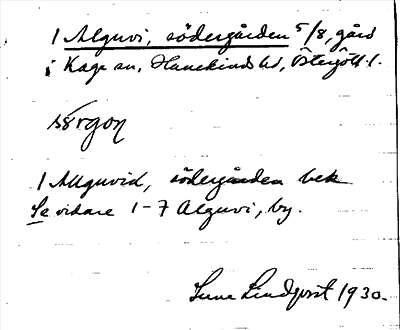 1 Alguvi, södergården 5/8, gård
i Kaga sn, Hanekinds hd, Östergötl. l.
1 Alguvid, södergården bek
Se vidare 1-7 Alguvi, by.
Sune Lindqvist 1930.